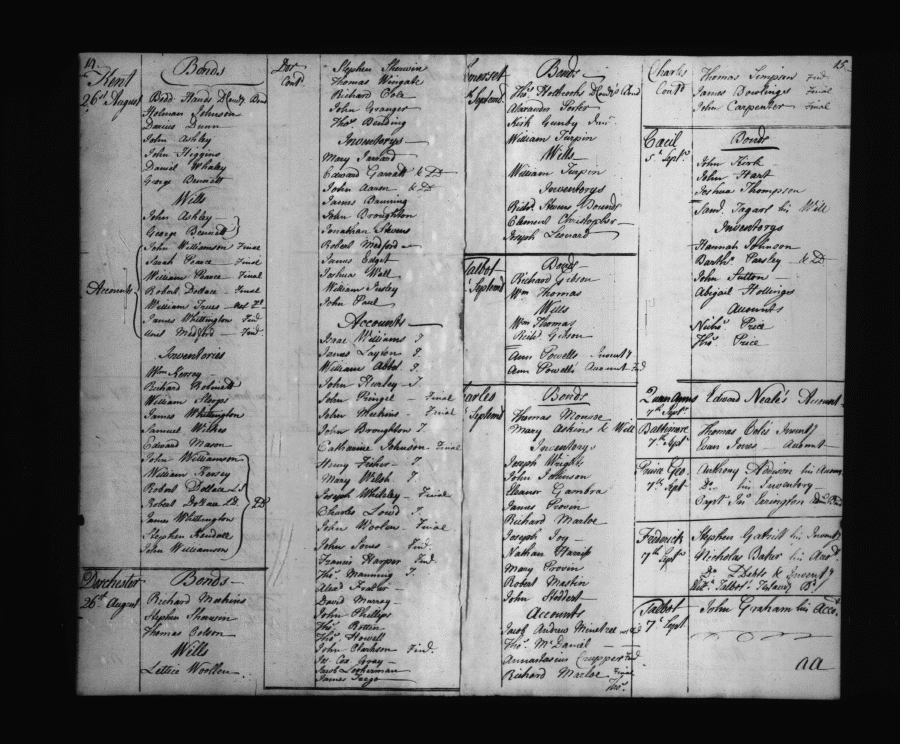 14.
Kent
26th August
Bonds
Holman Johnson
Darius Dunn
John Ashley
John Higgins
Daniel Whaley
George Bennett
Wills
John Ashley
George Bennett
Accounts
John Williamson Final
Sarah Pearce Final
William Pearce Final
Robert Dollace Final
William Trues
James Whittington Find
Medford Find
Inventories
Wm Kersey
Richard Robinett
William Sleops
James Whittington
Samuel Wilkes
Edward Mason
John Williamson
William Kersey
Robert Dollace
Robert Dollace LD
James Whittington
Stephen Kendall
John Williamson
Dorchester
26th August
Bonds
Richard Meekins
Stephen Shawin
Thomas Colson
Wills
Lettice Woollen
Dor
Contd
Stephen Shawin
Thomas Wingate
Richard Cole
John Granger
Thos Bending
Inventorys
Mary Jarrard
Edward Garratt & LD
John Aaron & LD
James Banning
John Broughton
Jonathan Stevens
Robert Medford
James Edget
Joshua Wall
William Insley
John Paul
Accounts
Isaac Williams F
James Layton F.
William Abbot F
John Hurley F
John Pringel Final
John Meekins Final
John Broughton F.
Catharine Johnson Final
Henry Fisher F.
Mary Walsh F.
Joseph Whiteley Final
Charles Lowd F
John Woolen Final
John Jones Find.
Francis Harper Find
Thos Manning F.
David Murray
John Phillips
Thos Howell
John Clarkson Find.
Js. Cox Gray
Jacob Lockerman
James Fargo
Somerset
Septemd
Bonds
Thos Holbrooks
Alexander Porter
Kirk Gunby Junr
William Turpin
Wills
William Turpin
Inventorys
Richd. Stevens Bounds
Clement Christopher
Joseph Leonard
Talbot
Septemd
Bonds
Richard Gibson
Wm Thomas
Wills
Wm Thomas
Richd. Gibson
Ann Powells Inventy
Ann Powells Account Find
Charles
Septemd
Bonds
Thomas Monroe
Mary Askins & Will
Inventorys
Joseph Wright
John Johnson
Eleanor Gambra
James Provin
Richard Marloe
Joseph Joy
Nathan Harris
Mary Provin
Robert Mastin
John Stoddert
Accounts
Jacob Andrew Minetree
Thos McDaniel
Annastasius Crupper Find
Richard Marloe Final
Thos.
15.
Charles
Contd
Thomas Simpson Find
James Bowlinger Final
John Carpenter Final
Cecil
5th Septr
Bonds
John Kirk
John Hart
Joshua Thompson
Saml. Tagart his Will
Inventorys
Hannah Johnson
Barthw Parsley & LD
John Sutton
Abigail Hollings
Accounts
Nichs Price
Thos. Price
Queen Anns
7th Septr
Edward Neale's Account
Baltimore
7th Sept
Thomas Coles Inventy
Evan Jones Account
Prince Geo.
7th Sept
Anthony Addison his Accou
Do his Inventory
Frederick
7th Septr
Stephen Gatrill his Inventy
Nicholas Baker his Acct
Do Ddebts & Inventy
Talbot
7th Sept
John Graham his Acco.
aa